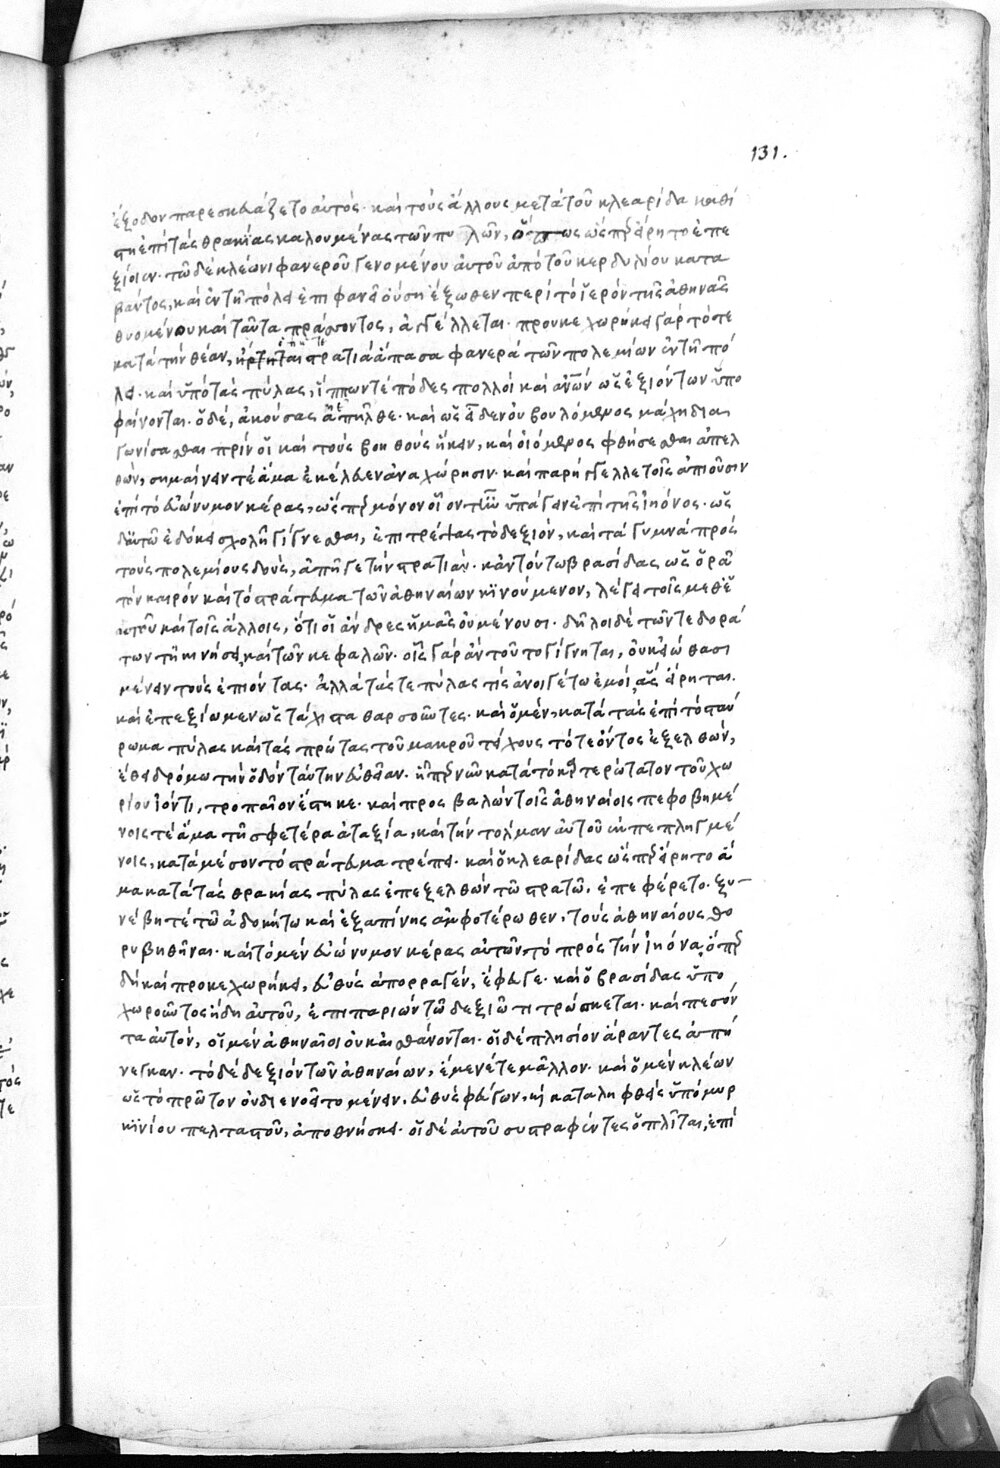 131.
ἔξοδον παρεσκευάζετο αὐτός· καὶ τοὺς ἄλλους μετὰ τοῦ κλεαρίδα καθί
στη ἐπὶ τὰς θρακίας καλουμένας τῶν πυλῶν, ὅπως ὥσπερ εἴρητο ἐπε
ξίοιεν· τῶ δὲ κλέωνι φανεροῦ γενομένου αὐτοῦ ἀπὸ τοῦ κερδυλίου κατα
βάντος, καὶ ἐν τῆ πόλει ἐπιφανεῖ οὔση ἔξωθεν περὶ τὸ ἱερὸν τῆς ἀθηνᾶς
θυομένου καὶ ταῦτα πράσσοντος, ἀγγέλλεται· προυκεχωρήκει γὰρ τότε
κατὰ τὴν θέαν, ὅτι ἥ τε στρατιὰ ἅπασα φανερὰ τῶν πολεμίων ἐν τῆ πό
λει· καὶ ὑπὸ τὰς πύλας, ἵππων τε πόδες πολλοὶ καὶ ἀνων ὡς ἐξιόντων ὑπο
φαίνονται· ὁ δὲ, ἀκούσας ἐπῆλθε· καὶ ὡς εἶδεν οὐ βουλόμενος μάχη δια
γωνίσασθαι πρίν οἱ καὶ τοὺς βοηθοὺς ἥκειν, καὶ οἰόμενος φθήσεσθαι ἀπελ
θών, σημαίνειν τὲ ἅμα ἐκέλευεν ἀναχώρησιν· καὶ παρήγγελλε τοῖς ἀπιοῦσιν
ἐπὶ τὸ εὐώνυμον κέρας, ὥσπερ μόνον οἷόν τ' ἦν ὑπάγειν ἐπὶ τῆς ἠιόνος· ὡς
δ' αὐτῶ ἐδόκει σχολῆ γίγνεσθαι, ἐπιτρέψας τὸ δεξιὸν, καὶ τὰ γυμνὰ πρὸς
τοὺς πολεμίους δοὺς, ἀπῆγε τὴν στρατιάν· κἀν τούτω βρασίδας ὡς ὁρᾶ
τὸν καιρὸν καὶ τὸ στράτευμα τῶν ἀθηναίων κϊνούμενον, λέγει τοῖς μεθ' ἑ
αυτοῦ καὶ τοῖς ἄλλοις, ὅτι οἱ ἄνδρες ἡμᾶς οὐ μένουσι· δῆλοι δὲ τῶν τε δορά
των τῆ κινήσει, καὶ τῶν κεφαλῶν· οἷς γὰρ ἂν τοῦτο γίγνηται, οὐκ εἰώθασι
μένειν τοὺς ἐπιόντας· ἀλλὰ τάς τε πύλας τὶς ἀνοιγέτω ἐμοὶ, ἃς εἴρηται.
καὶ ἐπεξίωμεν ὡς τάχιστα θαρσοῦντες· καὶ ὁ μὲν, κατὰ τὰς ἐπὶ τὸ σταύ
ρωμα πύλας καὶ τὰς πρώτας τοῦ μακροῦ τείχους τότε ὄντος ἐξελθών,
ἔθει δρόμω τὴν ὁδὸν ταύτην εὐθεῖαν· ἧπερ νῦν κατὰ τὸ καρτερώτατον τοῦ χω
ρίου ἰόντι, τροπαῖον ἕστηκε· καὶ προσβαλὼν τοῖς ἀθηναίοις πεφοβημέ
νοις τὲ ἅμα τῆ σφετέρα ἀταξία, καὶ τὴν τόλμαν αὐτοῦ ἐκπεπληγμέ
νοις, κατὰ μέσον τὸ στράτευμα τρέπει· καὶ ὁ κλεαρίδας ὥσπερ εἴρητο ἅ
μα κατὰ τὰς θρακίας πύλας ἐπεξελθὼν τῶ στρατῶ, ἐπεφέρετο· ξυ
νέβη τὲ τῶ ἀδοκήτω καὶ ἐξαπίνης ἀμφοτέρωθεν, τοὺς ἀθηναίους θο
ρυβηθῆναι· καὶ τὸ μὲν εὐώνυμον κέρας αὐτῶν, τὸ πρὸς τὴν ἠιόνα, ὅπερ
δὴ καὶ προκεχωρήκει, εὐθὺς ἀπορραγὲν, ἔφευγε· καὶ ὁ βρασίδας ὑπο
χωροῦντος ἤδη αὐτοῦ, ἐπιπαριὼν τῶ δεξιῶ τιτρώσκεται· καὶ πεσόν
τα αὐτὸν, οἱ μὲν ἀθηναῖοι οὐκ αἰσθάνονται· οἱ δὲ πλησίον ἄραντες ἀπή
νεγκαν· τὸ δὲ δεξιὸν τῶν ἀθηναίων, ἔμενέ τε μᾶλλον· καὶ ὁ μὲν κλέων
ὡς τὸ πρῶτον οὐ διενοεῖτο μένειν, εὐθὺς φεύγων, κỳ καταληφθεὶς ὑπὸ μυρ
κϊνίου πελταστοῦ, ἀποθνήσκει· οἱ δὲ αὐτοῦ συστραφέντες ὁπλῖται, ἐπὶ